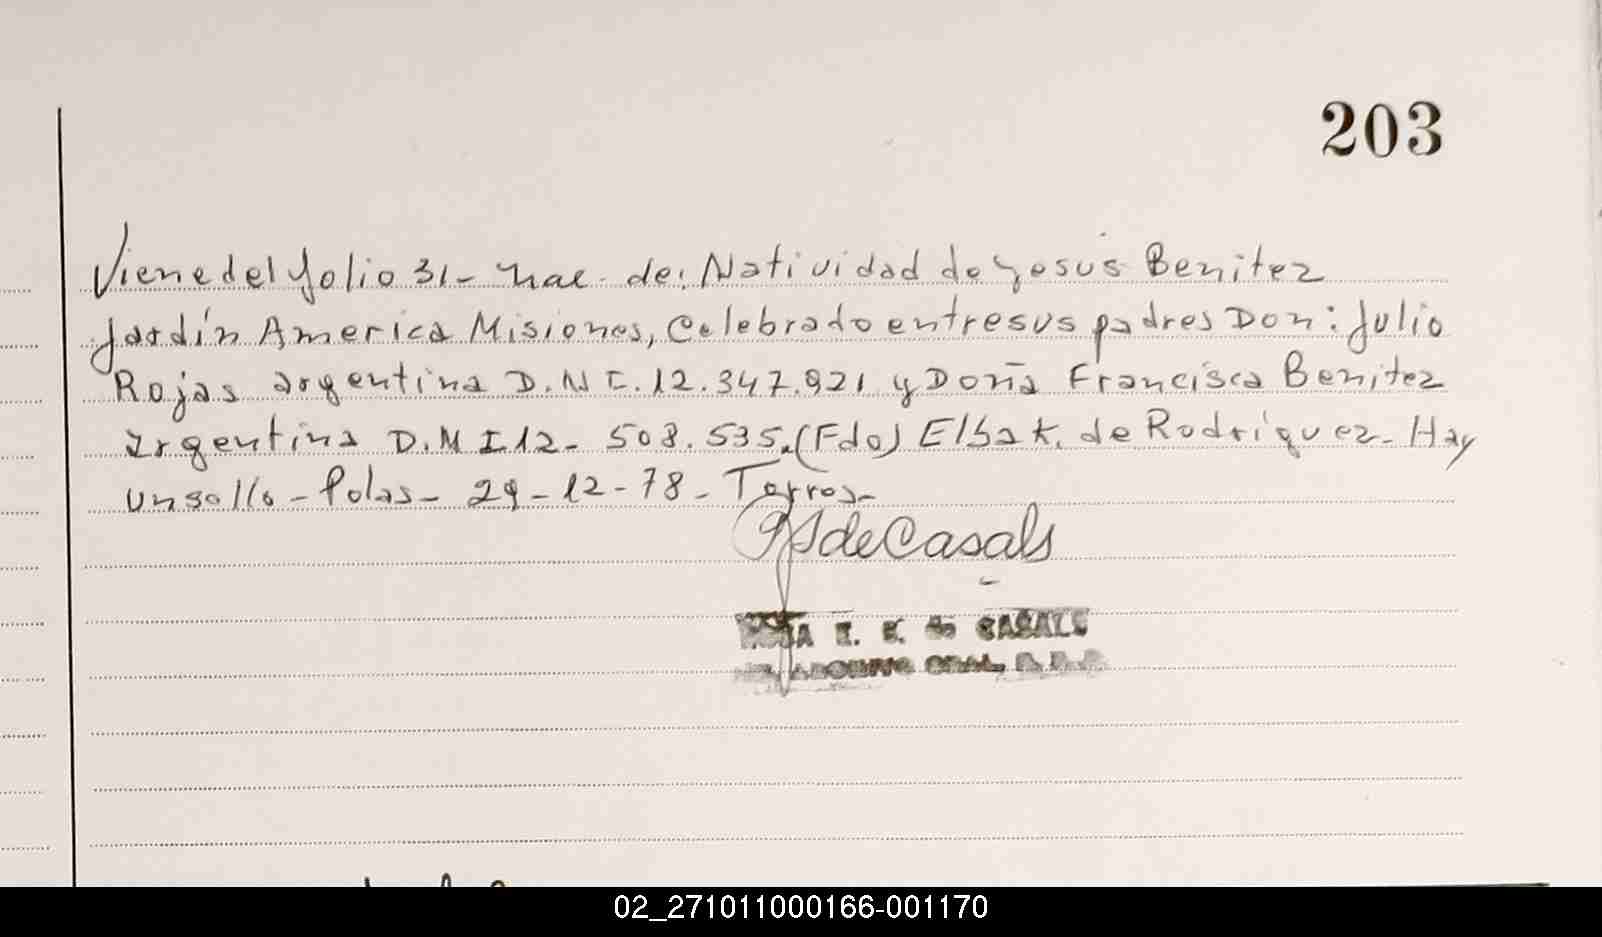 203
Viene del folio 31- Nac. de: Natividad de Jesus Benitez
Jardín America Misiones, Celebrado entre sus padres Don: Julio
Rojas argentina D.N.I. 12.347.921 y Doña Francisca Benitez
argentina D.M.I. 12- 508.535.(Fdo) Elsa K. de Rodriguez- Hay
un sello- Polas- 29-12-78- Torres-
de Casals
E. K. de CASALS
ARCHIVO GRAL.
02_271011000166-001170